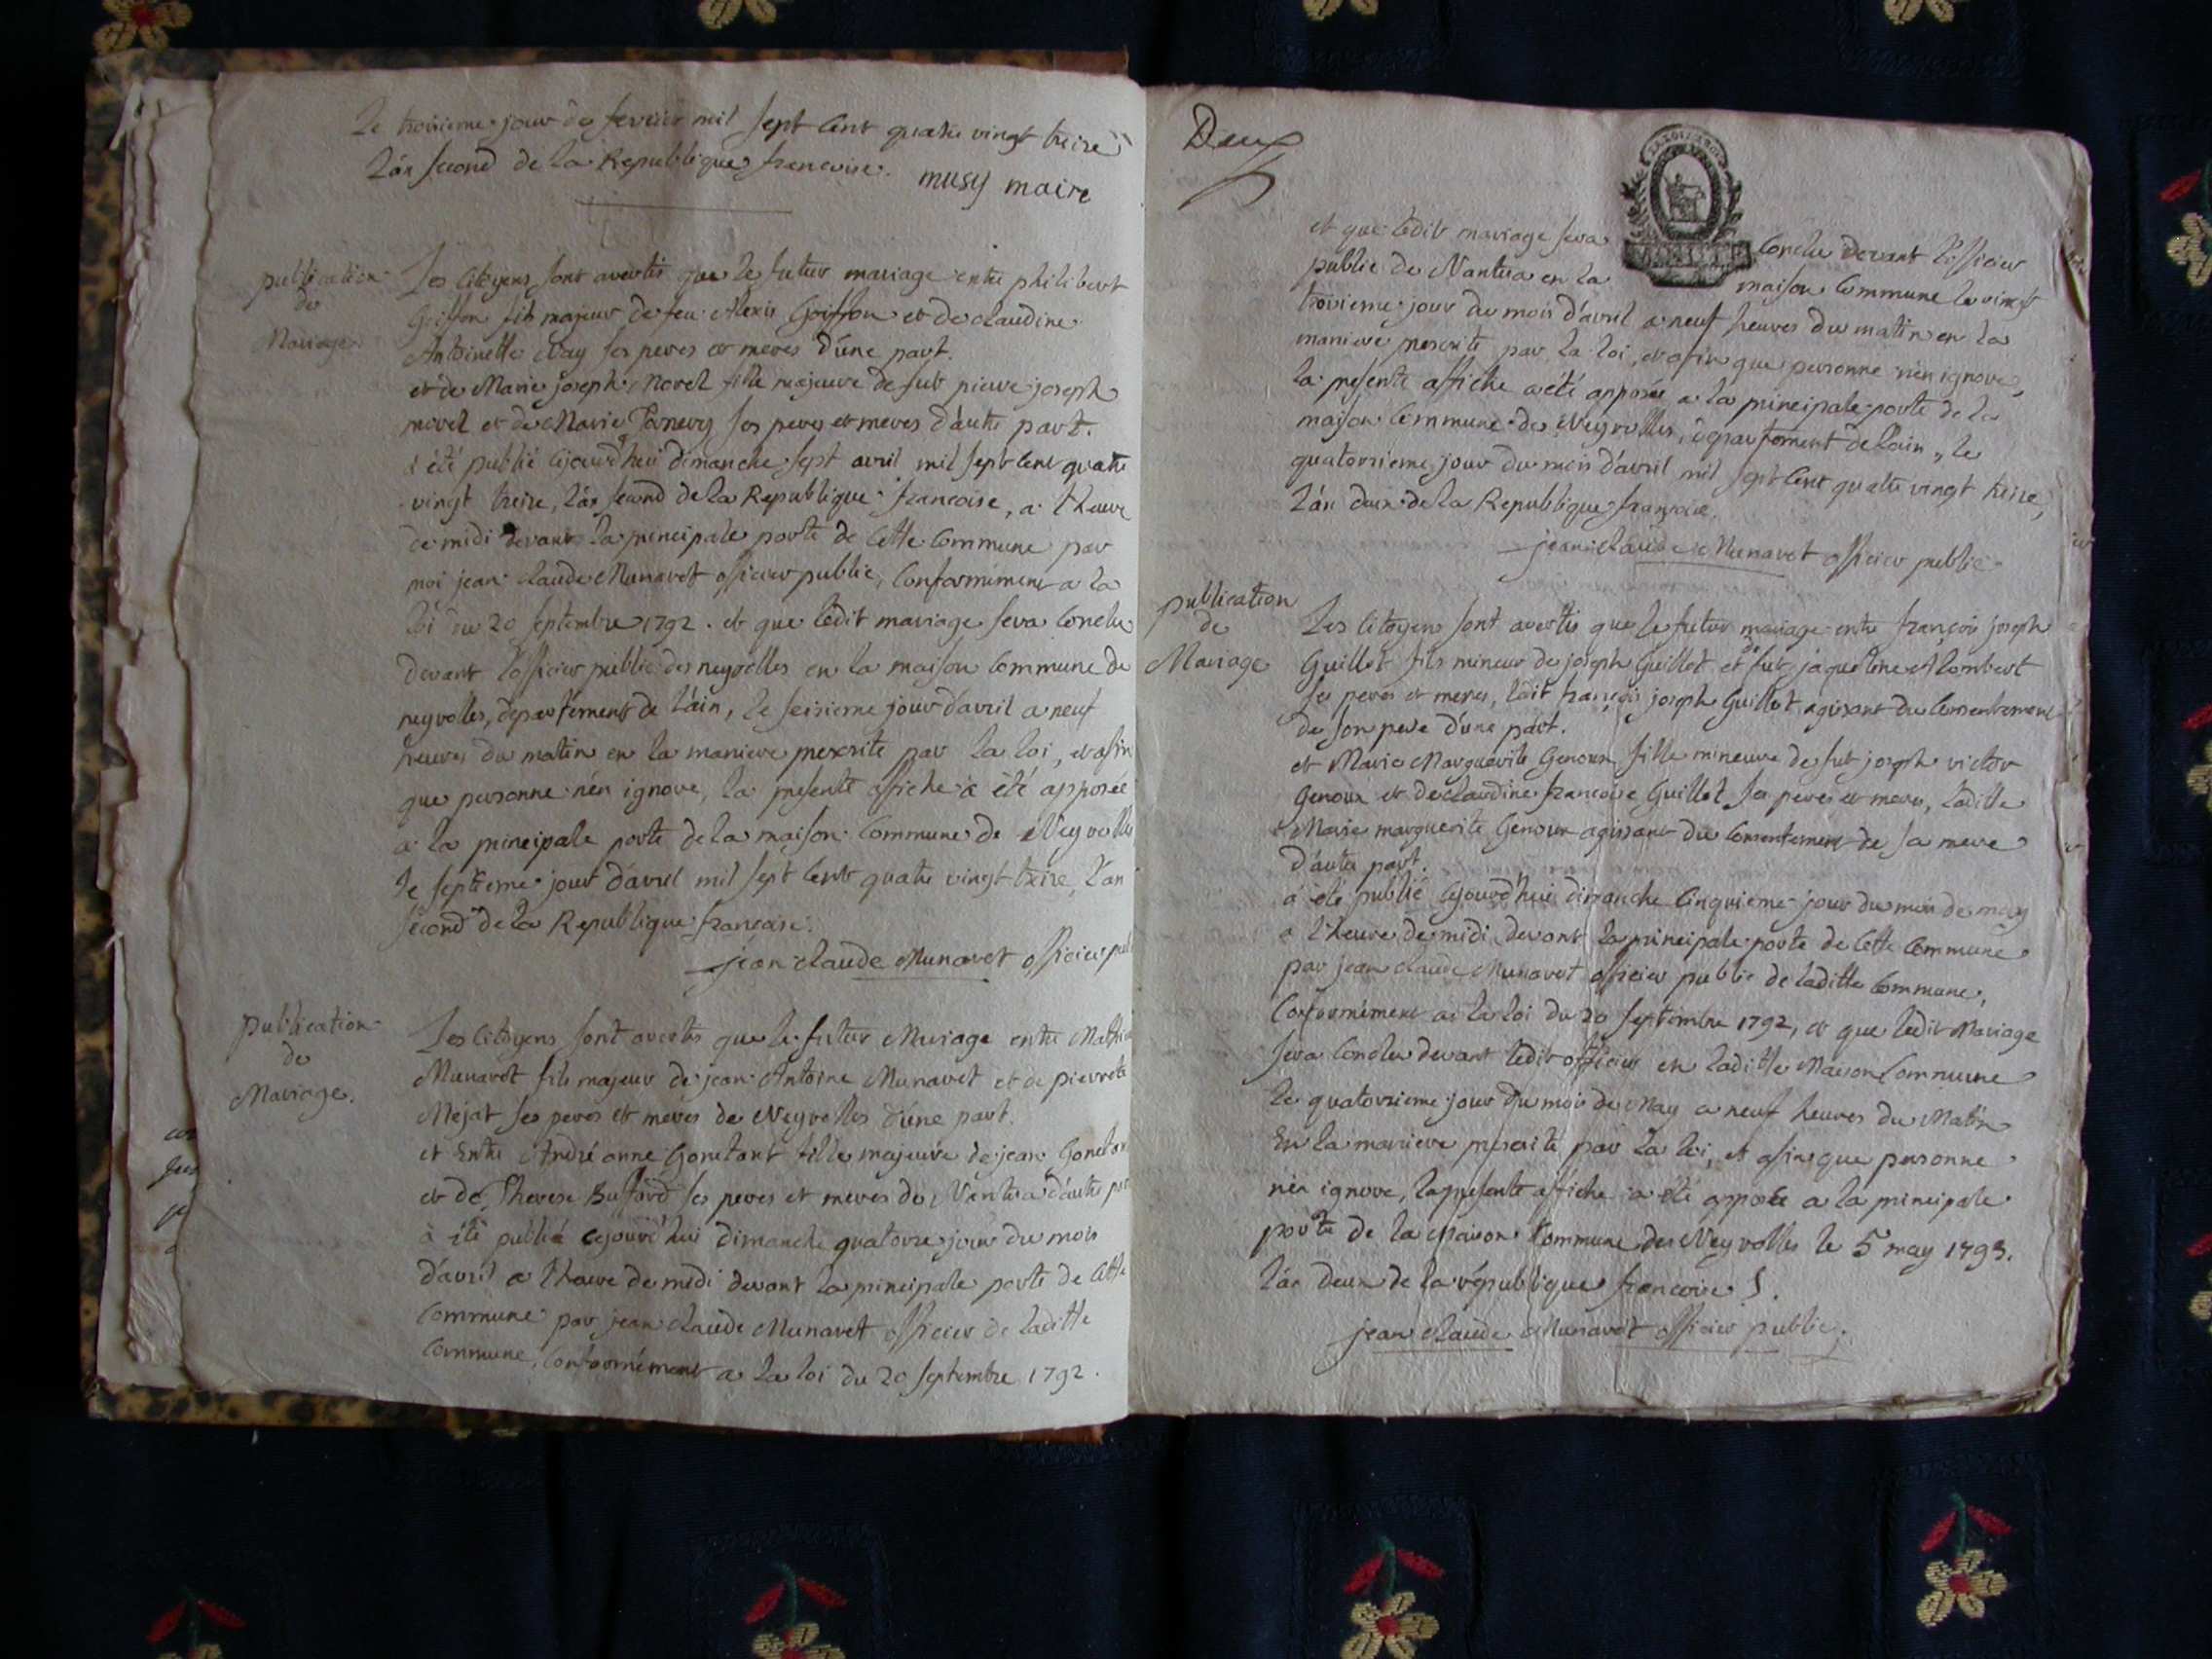 Le troisieme jour de fevrier mil sept cent quatre vingt treize
L'an second de la Republique francoise. musy maire
publication
de
Mariage
Les citoyens sont avertis que le futur mariage entre philibert
Goiffon fils majeur de feu Alexis Goiffon et de claudine
Antoinette Vay ses peres et meres d'une part.
et de Marie joseph Morel fille majeure de fut pierre joseph
morel et de Marie ses peres et meres d'autre part.
à été publié cejourd'hui dimanche sept avril mil sept cent quatre
vingt treize, l'an second de la Republique francoise, a l'heure
de midi devant la principale porte de cette commune par
moi jean claude Munavet officier public, conformément a la
loi du 20 septembre 1792. et que ledit mariage sera conclu
devant l'officier public des neyrolles en la maison commune de
neyrolles, departement de l'ain, le seizieme jour d'avril a neuf
heures du matin en la maniere prescrite par la loi, et afin
que personne n'en ignore, la presente affiche à été apposée
a la principale porte de la maison commune de Neyrolles
le septieme jour d'avril mil sept cent quatre vingt treize, l'an
second de la Republique françoise.
jean claude Munavet officier pub
publication
de
Mariage.
Les citoyens sont avertis que le futur Mariage entre Mathi
Munavet fils majeur de jean Antoine Munavet et de pierrete
Mejat ses peres et meres de Neyrolles d'une part.
et Entre André anne Gonetant fille majeure de jean Gonetan
et de Therese Buffard ses peres et meres de Nantua d'autre par
à été publié cejourd'hui dimanche quatorze jour du mois
d'avril a l'heure de midi devant la principale porte de cette
commune par jean claude Munavet officier de laditte
commune, conformément a la loi du 20 septembre 1792.
Deux
et que ledit mariage sera conclu devant l'officier
public de Nantua en la maison commune le vingt
troisieme jour du mois d'avril a neuf heures du matin en la
maniere prescrite par la loi, et afin que personne n'en ignore,
la presente affiche a été apposée a la principale porte de la
maison commune des Neyrolles, departement de l'ain, le
quatorzieme jour du mois d'avril mil sept cent quatre vingt treize,
l'an deux de la Republique françoise.
jean claude Munavet officier public
publication
de
Mariage
Les citoyens sont avertis que le futur mariage entre françois joseph
Guillot fils mineur de joseph Guillot et de fut jaqueline Alombert
ses peres et meres, ledit françois joseph Guillot agissant du consentement
de son pere d'une part.
et Marie Marguerite Genoux fille mineure de fut joseph victor
Genoux et de claudine francoise Guillot ses peres et meres, laditte
Marie marguerite Genoux agissant du consentement de sa mere
d'autre part.
à été publié cejourd'hui dimanche cinquieme jour du mois de may
a l'heure de midi devant la principale porte de cette commune
par jean claude Munavet officier public de laditte commune,
conformément a la loi du 20 septembre 1792, et que ledit Mariage
sera conclu devant ledit officier en laditte Maison commune
le quatorzieme jour du mois de May a neuf heures du Matin
En la maniere prescrite par la loi, et afin que personne
n'en ignore, la presente affiche a été apposée a la principale
porte de la Maison commune des Neyrolles le 5 may 1793.
l'an deux de la république francoise.
jean claude Munavet officier public.